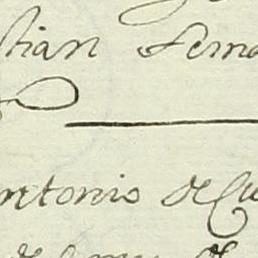 tian Ferna
ntonio de Cu